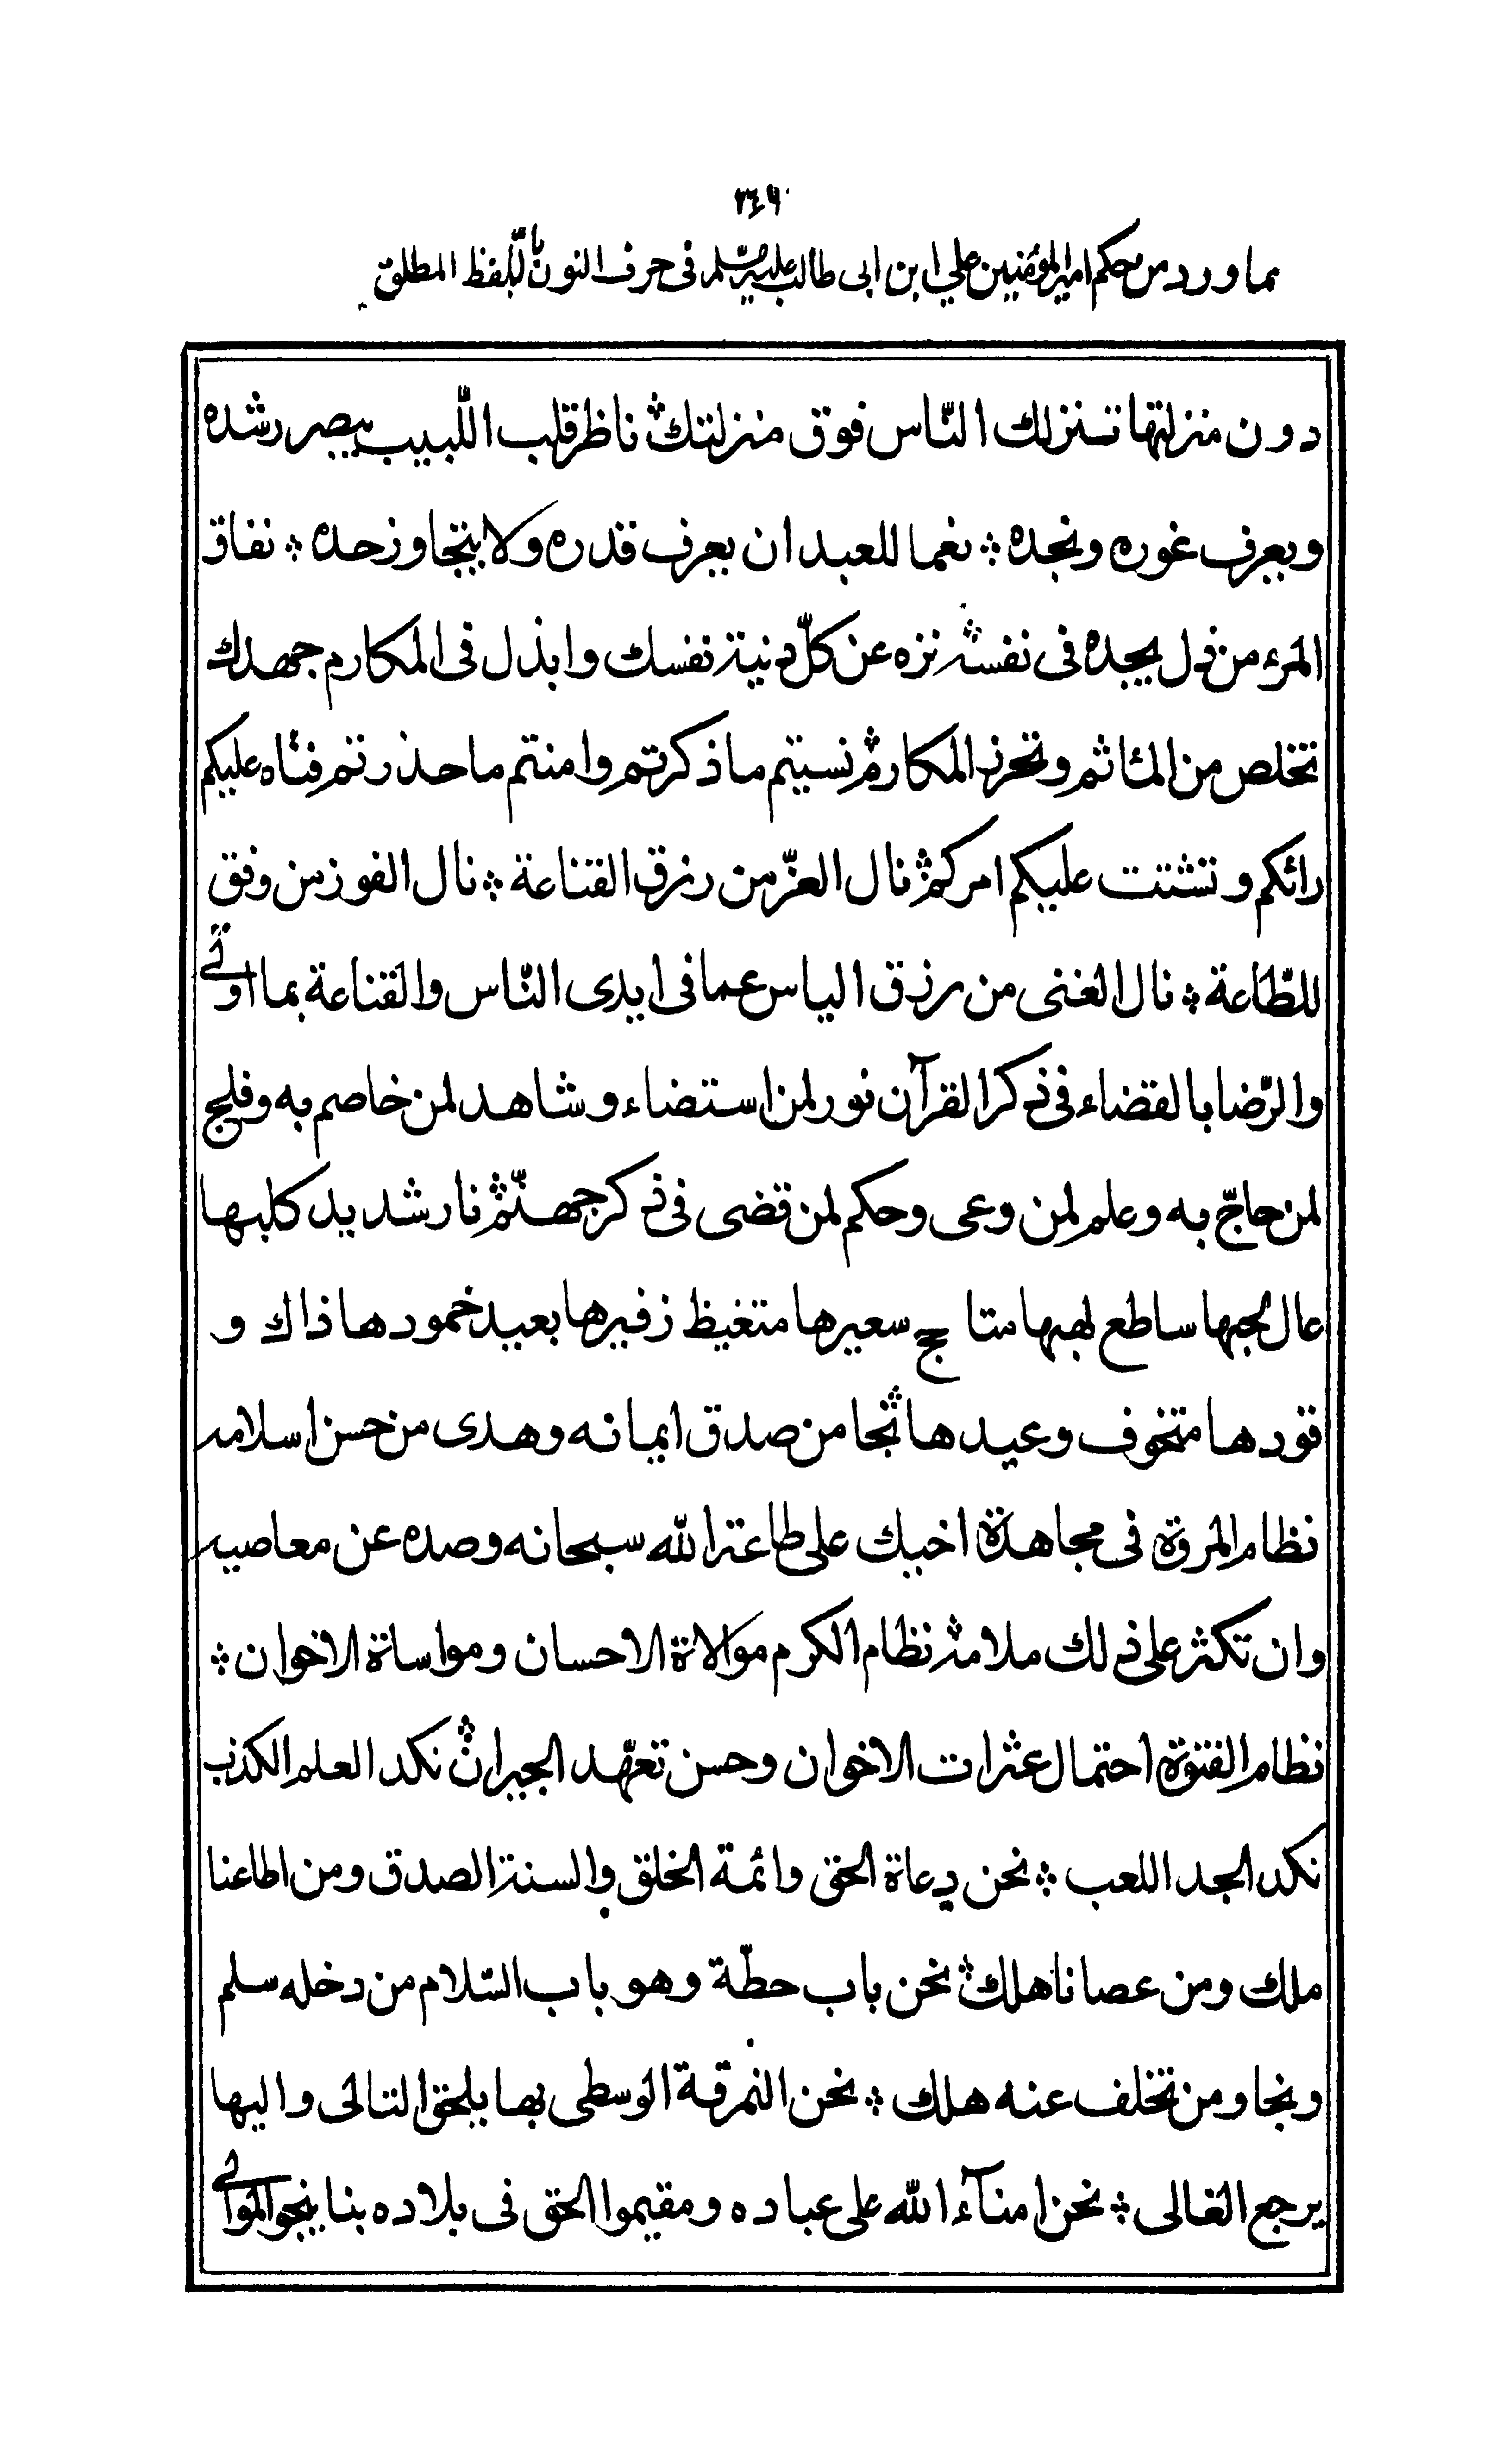 ٢٤٦
مما ورد من حكم امير المؤمنين علي ابن ابى طالب عليه السلام فى حرف النون باللفظ المطلق
دون منزلتها تنزلك النّاس فوق منزلتك ؞ ناظر قلب اللّبيب يبصر رشده
ويعرف غوره ونجده ؞ نعما للعبد ان يعرف قدره ولا يتجاوز حده ؞ نفاق
المرء من ذل يجده فى نفسه ؞ نزه عن كلّ دنية نفسك وابذل فى المكارم جهدك
تخلص من المئاثم وتحرز المكارم ؞ نسيتم ما ذكرتم وامنتم ما حذرتم فتاه عليكم
رائكم وتشتت عليكم امركم ؞ نال العزّ من رزق القناعة ؞ نال الفوز من وفق
للطّاعة ؞ نال الغنى من رزق الياس عما فى ايدى النّاس والقناعة بما اوتى
والرّضا بالقضاء ؞ فى ذكر القرآن نور لمن استضاء وشاهد لمن خاصم به وفلج
لمن حاجّ به وعلم لمن وعى وحكم لمن قضى ؞ فى ذكر جهنّم ؞ نار شديد كلبها
عال لجبها ساطع لهبها متاجج سعيرها متغيظ زفيرها بعيد خمودها ذاك و
قودها متخوف وعيدها ؞ نجا من صدق ايمانه وهدى من حسن اسلامه
نظام المروة فى مجاهدة اخيك على طاعة الله سبحانه وصده عن معاصيه
وان تكثر على ذلك ملامته ؞ نظام الكرم موالاة الاحسان ومواساة الاخوان ؞
نظام الفتوة احتمال عثرات الاخوان وحسن تعهّد الجيران ؞ نكد العلم الكذب
نكد الجد اللعب ؞ نحن دعاة الحق وائمة الخلق والسنة الصدق ومن اطاعنا
ملك ومن عصانا هلك ؞ نحن باب حطّة وهو باب السّلام من دخله سلم
ونجا ومن تخلف عنه هلك ؞ نحن النمرقة الوسطى بها يلحق التالى واليها
يرجع الغالى ؞ نحن امنآء الله على عباده ومقيموا الحق فى بلاده بنا ينجو الموالى